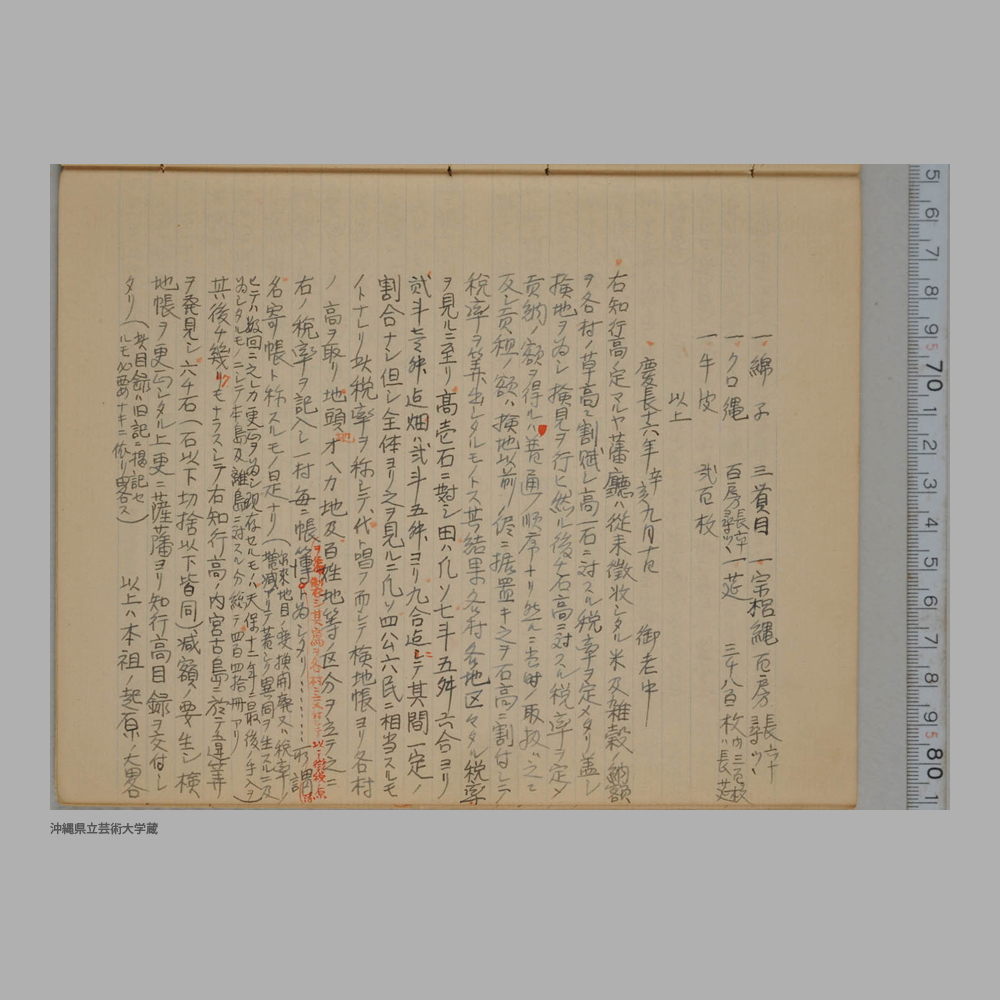 一綿子 三貫目 一宗梠縄 百房 長六十尋ツヽ
一クロ縄 百房 長六十尋ツヽ 一莚 三千八百枚 内三百枚ハ長莚
一牛皮 弐百枚
以上
慶長十六年辛亥九月十日 御老中
右知行高ノ定マルヤ藩廳ハ従来徴収シタル米及雑穀ノ納額
ヲ各村ノ草高ニ割賦シ高一石ニ対スル税率ヲ定メタリ蓋シ
検地ヲ為シ検見ヲ行ヒ然ル後チ石高ニ対スル税率ヲ定メ
貢納ノ額ヲ得ルハ普通ノ順序ナリ然ルニ当時ノ取扱ハ之ニ
反シ貢租ノ額ハ検地以前ノ侭ニ据置キ之ヲ石高ニ割付シテ
税率ヲ算出シタルモノトス其結果各村各地区々タル税率
ヲ見ルニ至リ高壱石ニ対シ田ハ凡ソ七斗五舛六合ヨリ
弐斗七舛迠畑ハ弐斗五舛ヨリ九合迠ニシテ其間一定ノ
割合ナシ但シ全体ヨリ之ヲ見ルニ凡ソ四公六民ニ相当スルモ
ノトナレリ此税率ヲ称シテ代ト唱フ而シテ検地帳ヨリ各村
ノ高ヲ取リ地頭地オヘカ地及百姓地等ノ区分ヲ立テ之ニ
右ノ税率ヲ記入シ一村毎ニ帳簿ト為シタリ…………所謂
名寄帳ト称スルモノ是ナリ
其後チ幾クモナラスシテ右知行高ノ内宮古島ニ於テ違算
ヲ発見シ六千石(石以下切捨以下皆同)減額ノ要生シ検
地帳ヲ更正シタル上更ニ薩藩ヨリ知行高目録ヲ交付シ
タリ(其目録ハ旧記ニ掲記セルモ必要ナキニ依リ畧ス) 以上ハ本祖ノ起原ノ大畧
5 6 7 8 9 70 1 2 3 4 5 6 7 8 9 80 1
沖縄県立芸術大学蔵